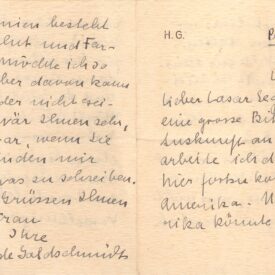 nien besteht
lut und Far-
möchte ich so
ber davon kann
der nicht sei-
wär Ihnen sehr,
ar, wenn Sie
nden mir
as zu schreiben.
Grüssen Ihnen
rau
Ihre
de Goldschmidt
H.G.
Lieber Lasar Seg
eine grosse Bi
Auskunft an
arbeite ich d
hier fortzuko
Amerika.
rika könnte